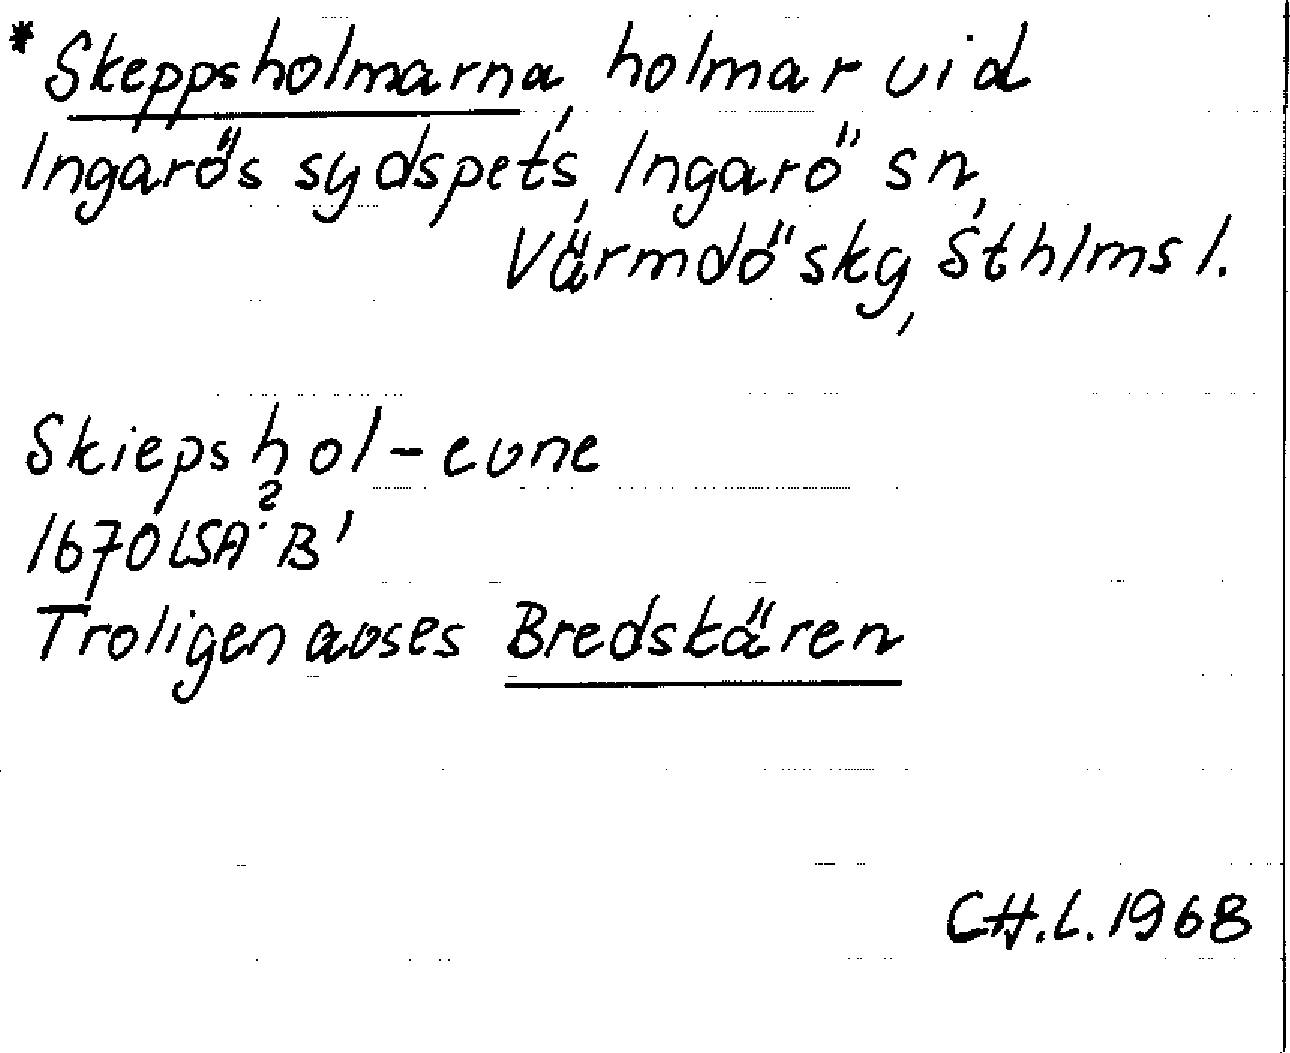 *Skeppsholmarna, holmar vid
Ingarös sydspets, Ingarö sn,
Värmdö skg, Sthlms l.
Skiepshol-evne
?
1670 LSA B¹
Troligen avses Bredskären
CH.L. 1968